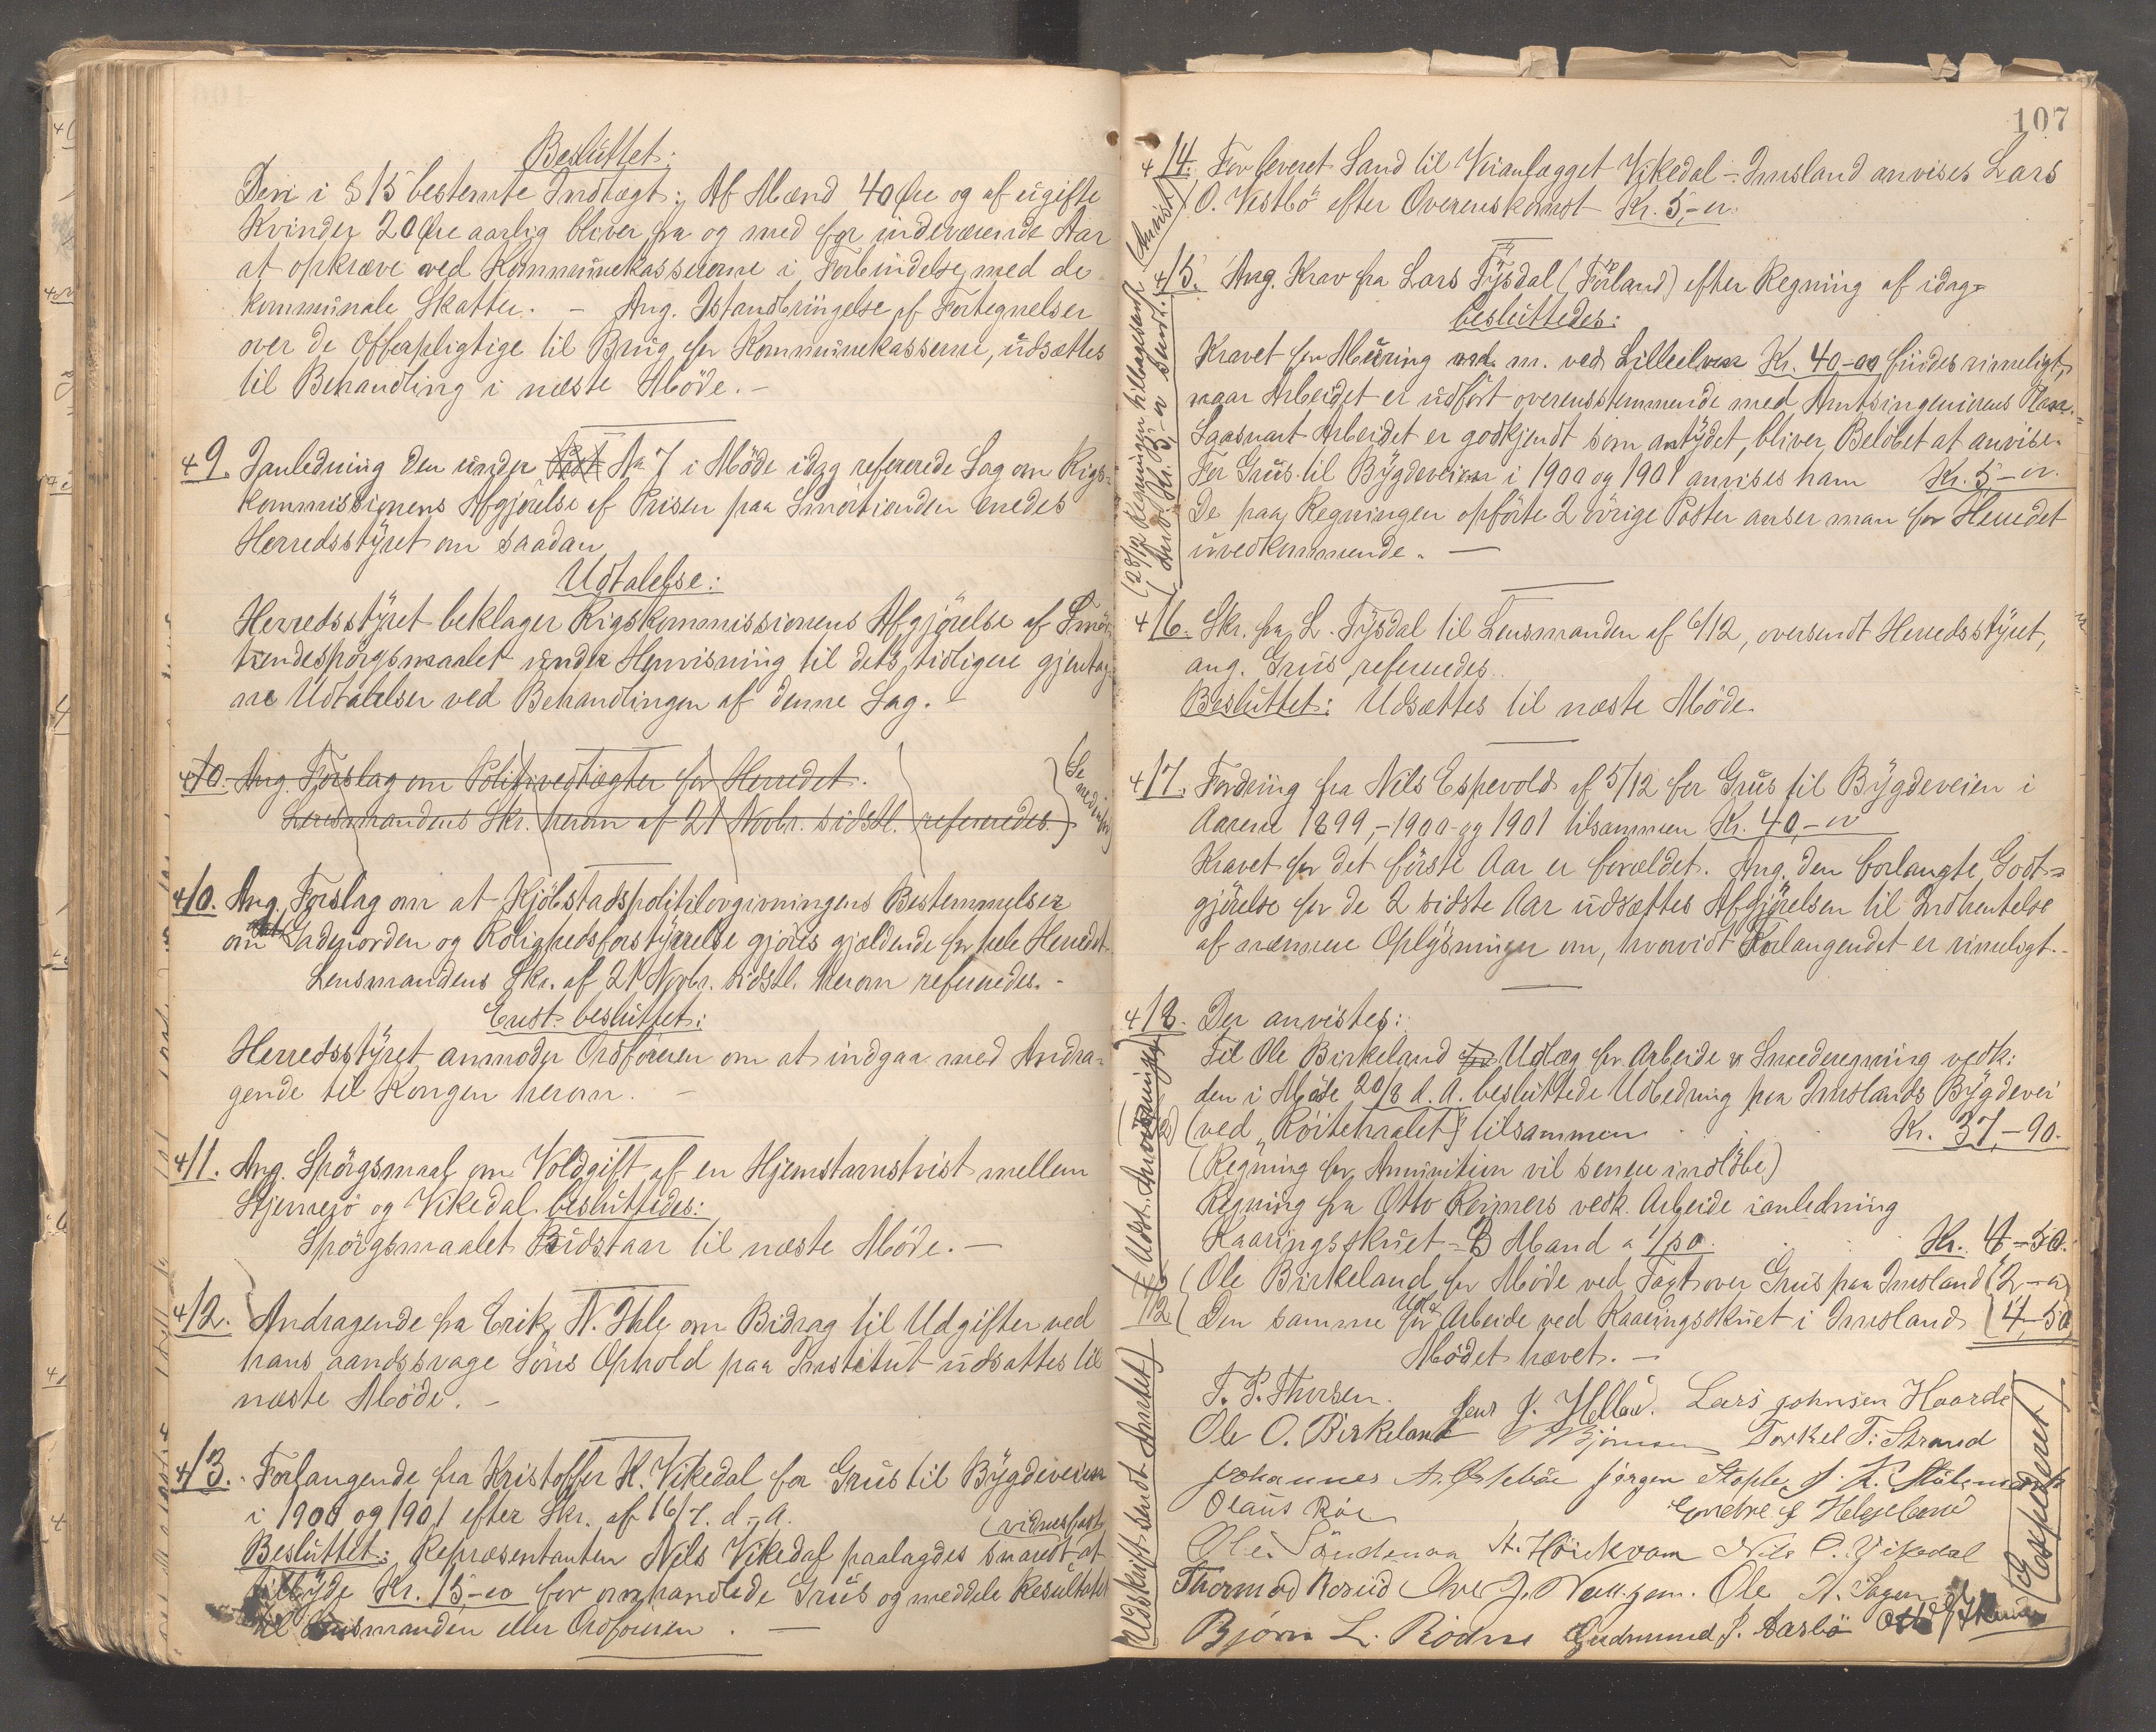 Besluttet:
Den i § 15 bestemte Indtægt: Af Mænd 40 Øre og af ugifte
Kvinder 20 Øre aarlig bliver fra og med for indeværende Aar
at opkræve ved Kommunekassererne i Forbindelse med de
kommunale Skatter. - Ang. Istandbringelse af Fortegnelser
over de Offerpligtige til Brug for Kommunekasserne, udsættes
til Behandling i næste Møde. -
9. Ianledning den under No 7 i Møde idag refererede Sag om Rigs-
kommissionens Afgjørelse af Prisen paa Smørtienden enedes
Herredsstyret om saadan
Udtalelse:
Herredsstyret beklager Rigskommissionens Afgjørelse af Smør-
tiendespørgsmaalet under Henvisning til dets tidligere gjentag-
ne Udtalelser ved Behandlingen af denne Sag. -
10. Ang. Forslag om Politivedtægter for Herredet.
Lensmandens Skr. herom af 21 Novbr. sidstl. refereredes.
(Se nedenfor)
10. Ang. Forslag om at Kjøbstadspolitilovgivningens Bestemmelser
om Gadeuorden og Rolighedsforstyrrelse gjøres gjældende for hele Herredet.
Lensmandens Skr. af 21 Novbr. sidstl. herom refereredes. -
Enst. besluttet:
Herredsstyret anmoder Ordføreren om at indgaa med Andra-
gende til Kongen herom. -
11. Ang. Spørgsmaal om Voldgift af en Hjemstavnstvist mellem
Stjernerø og Vikedal besluttedes:
Spørgsmaalet Udstaar til næste Møde. -
12. Andragende fra Erik N. Ihle om Bidrag til Udgifter ved
hans aandssvage Søns Ophold paa Institut udsattes til
næste Møde. -
13. Forlangende fra Kristoffer K. Vikedal for Grus til Bygdeveien
i 1900 og 1901 efter Skr. af 16/7. d. A.
(vidnesfast
Besluttet: Repræsentanten Nils Vikedal paalagdes snarest at
tilbyde Kr. 15,-00 for omhandlede Grus og meddele Resultatet
til Lensmanden eller Ordføreren. -
107
14. For leveret Sand til Veianlægget Vikedal - Imsland anvises Lars
O. Vestbø efter Overenskomst Kr. 5,- 00.
(Anvist)
15. Ang. Krav fra Lars Tysdal (Førland) efter Regning af idag
besluttedes:
Kravet for Muring m. m. ved Lilleelven Kr. 40-00 findes rimeligt,
naar Arbeidet er udført overensstemmende med Amtsingeniørens Plan.
Saasnart Arbeidet er godkjendt som antydet, bliver Beløbet at anvise.
For Grus til Bygdeveien i 1900 og 1901 anvises ham Kr. 5,-00.
De paa Regningen opførte 2 øvrige Poster anser man for Herredet
uvedkommende. -
(28/12 Regningen tilbagesendt
Anv. Kr. 5,-00 sendt.)
16. Skr. fra L. Tysdal til Lensmanden af 6/12, oversendt Herredsstyret,
ang. Grus refereredes.
Besluttet: Udsættes til næste Møde.
17. Fordring fra Nils Espevold af 5/12 for Grus til Bygdeveien i
Aarene 1899, - 1900 og 1901 tilsammen Kr. 40,-00
Kravet for det første Aar er forældet. Ang. den forlangte Godt-
gjørelse for de 2 sidste Aar udsættes Afgjørelsen til Indhentelse
af nærmere Oplysninger om, hvorvidt Forlangendet er rimeligt. -
18. Der anvistes:
Til Ole Birkeland Udlæg for Arbeide & Smederegning vedk.
den i Møde 20/8 d. A. besluttede Udbedring paa Imslands Bygdevei
(ved "Røitehaalet") tilsammen Kr. 37,-90.
(Regning for Amunition vil senere indløbe)
Regning fra Otto Reimers vedk. Arbeide ianledning
Kaaringsskuet - 3 Mand a 1/50. Kr. 4,-50.
Ole Birkeland for Møde ved Taxt over Grus paa Imsland (2,-00
Den samme for Arbeide ved Kaaringsskuet i Imsland (4,-50
(Udst. Anvisninger
(Udskrift sendt Amtet)
Mødet hævet. -
T. P. Thorsen. Jens J. Helland. Lars Johnsen Haarde
Ole O. Birkeland Bjørnsen Torkel T: Strand
Johannes A. Østebøe Jørgen Stople
Olaus Røe Endre J Helgeland
Ole Søndenaa A. Høiekvam Nils O. Vikedal
Thormod Rosiid Ole A. Sagen
Bjørn L. Rødne Gudmund J. Aarbø
(Expederet)